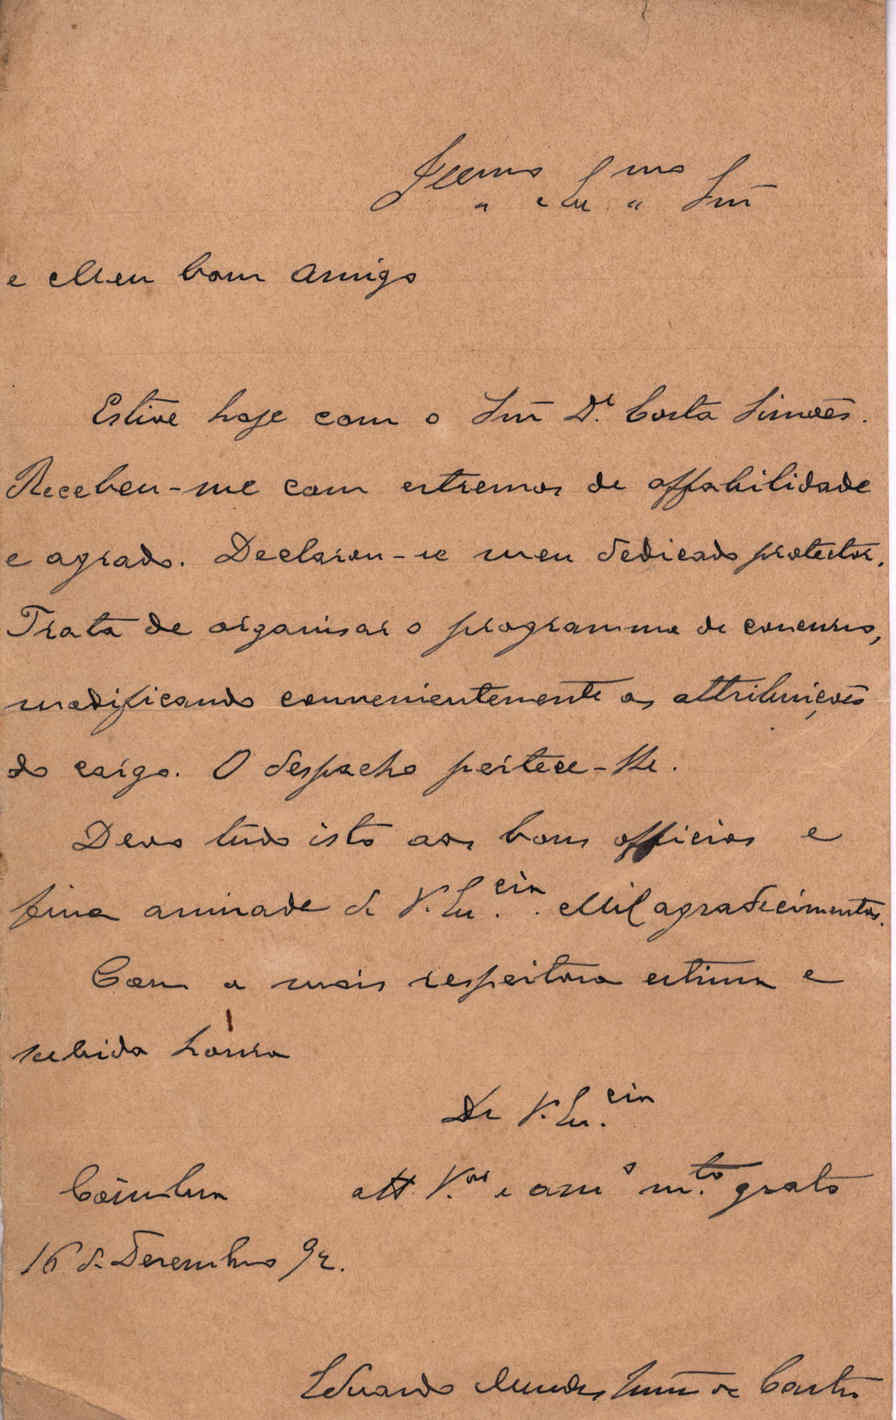 Illmo e Exmo Snr
e Meu bom amigo
Estive hoje com o Snr Dr. Costa Simões.
Recebeu-me com extremos de affabilidade
e agrado. Declarou-se meu dedicado protector.
Trata de organisar o programma de concurso,
modificando convenientemente as attribuições
do cargo. O despacho pertece-lhe.
Devo tudo isto aos bons officios e
fina amisade de V. Ex.cia. Mil agradecimentos.
Com a mais respeitosa estima e
subida honra
De V. Ex.cia
Coimbra att. V.or e amo m.to grato
16 de Dezembro 92.
Eduardo Mendes de Castro